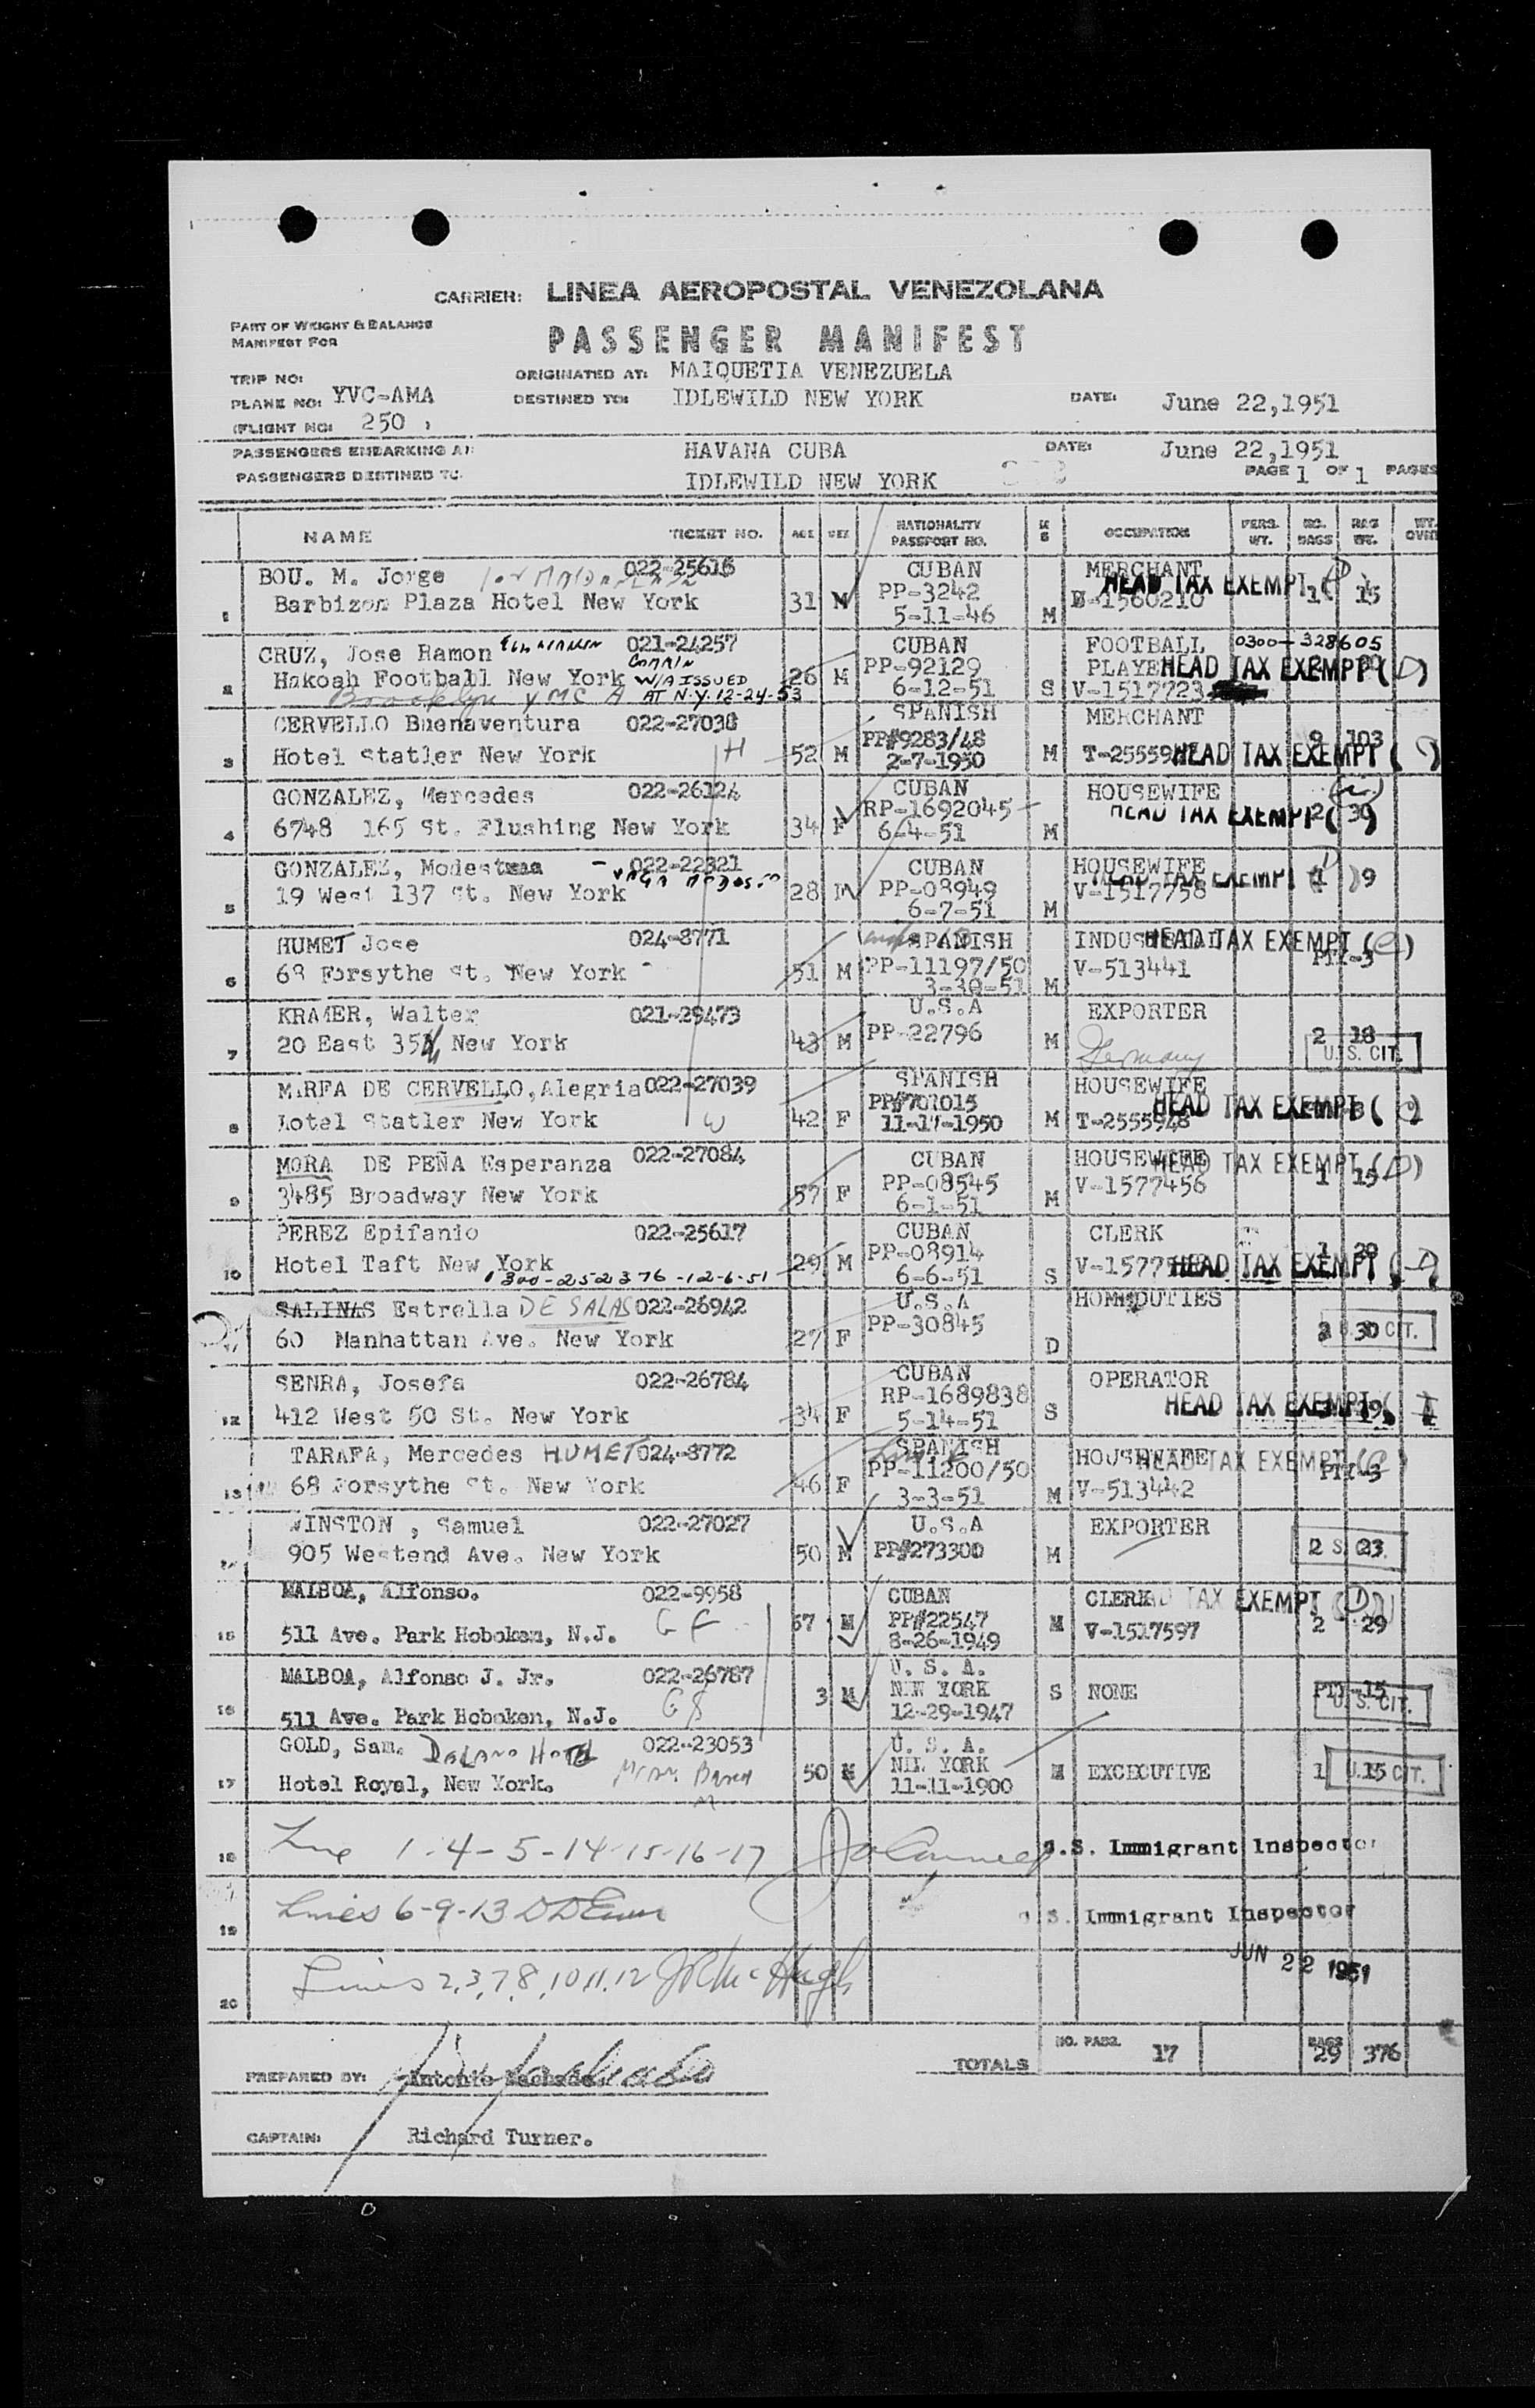 CARRIER: LINEA AEROPOSTAL VENEZOLANA
PART OF WEIGHT & BALANCE
MANIFEST FOR
PASSENGER MANIFEST
TRIP NO:
ORIGINATED AT: MAIQUETIA VENEZUELA
PLANE NO: YVC-AMA DESTINED TO: IDLEWILD NEW YORK DATE: June 22,1951
(FLIGHT NO: 250 )
PASSENGERS EMBARKING AT: HAVANA CUBA DATE: June 22,1951
PASSENGERS DESTINED TO: IDLEWILD NEW YORK PAGE 1 OF 1 PAGES
NAME TICKET NO. AGE SEX NATIONALITY PASSPORT NO. M S OCCUPATION PERS. WT. NO. BAGS BAG WT. WT. OVER
BOU. M. Jorge 022-25616 CUBAN MERCHANT
HEAD TAX EXEMPT (D)
Barbizon Plaza Hotel New York 31 M PP-3242 1 15
1 5-11-46 M
CRUZ, Jose Ramon 021-24257 CUBAN FOOTBALL 0300-328605
Hakoah Football New York W/A ISSUED 26 M PP-92129 PLAYER HEAD TAX EXEMPT (D)
2 Brooklyn YMCA AT N.Y. 12-24-53 6-12-51 S V-1517723
CERVELLO Buenaventura 022-27038 SPANISH MERCHANT
3 Hotel Statler New York H 52 M PP#9283/48 M 9 103
2-7-1950 HEAD TAX EXEMPT
GONZALEZ, Mercedes 022-26124 CUBAN HOUSEWIFE
4 6748 165 St. Flushing New York 34 F RP-1692045 HEAD TAX EXEMPT 2 30
6-4-51 M
GONZALEZ, Modesta 022-22321 CUBAN HOUSEWIFE
5 19 West 137 St. New York 28 PP-08949 V-1517758 HEAD TAX EXEMPT 1 9
6-7-51 M
HUMET Jose 024-8771 SPANISH HEAD TAX EXEMPT
6 68 Forsythe St. New York 51 M PP-11197/50 V-513441
3-30-51 M
KRAMER, Walter 021-29473 U.S.A EXPORTER
7 20 East 35 New York 43 M PP-22796 M Germany 2 18
U.S. CIT.
MARFA DE CERVELLO, Alegria 022-27039 SPANISH HOUSEWIFE
HEAD TAX EXEMPT
8 Hotel Statler New York W 42 F PP#701015 M T-2555948
11-17-1950
MORA DE PEÑA Esperanza 022-27084 CUBAN HOUSEWIFE
HEAD TAX EXEMPT (D)
9 3485 Broadway New York 57 F PP-08545 M V-1577456 1 15
6-1-51
PEREZ Epifanio 022-25617 CUBAN CLERK
10 Hotel Taft New York 29 M PP-08914 HEAD TAX EXEMPT
300-252376-12-6-51 6-6-51 S
SALINAS Estrella DE SALAS 022-26942 U.S.A HOME DUTIES
60 Manhattan Ave. New York 27 F PP-30845 D 30
SENRA, Josefa 022-26784 CUBAN OPERATOR
12 412 West 50 St. New York 34 F RP-1689838 S HEAD TAX EXEMPT
5-14-51
TARAFA, Mercedes HUMET 024-8772 SPANISH HOUSEWIFE
HEAD TAX EXEMPT
13 68 Forsythe St. New York 46 F PP-11200/50 V-513442
3-3-51 M
WINSTON , Samuel 022-27027 U.S.A EXPORTER
905 Westend Ave. New York 50 M PP#273300 M 2 23
MALBOA, Alfonso. 022-9958 CUBAN CLERK HEAD TAX EXEMPT
15 511 Ave. Park Hoboken, N.J. 67 M PP#22547 M V-1517597 2 29
8-26-1949
MALBOA, Alfonso J. Jr. 022-26787 U. S. A.
16 511 Ave. Park Hoboken, N.J. 3 M NEW YORK S NONE U.S. CIT.
12-29-1947
GOLD, Sam. 022-23053 U. S. A.
17 Hotel Royal, New York. 50 M NEW YORK M EXCECUTIVE 1 15 U.S. CIT.
11-11-1900
18 Line 1-4-5-14-15-16-17 U.S. Immigrant Inspector
19 Lines 6-9-13 U.S. Immigrant Inspector
JUN 22 1951
20 Lines 2,3,7,8,10,11,12 McHugh
TOTALS NO. PASS. 17 BAGS 29 376
PREPARED BY: Antonio Machado.
CAPTAIN: Richard Turner.